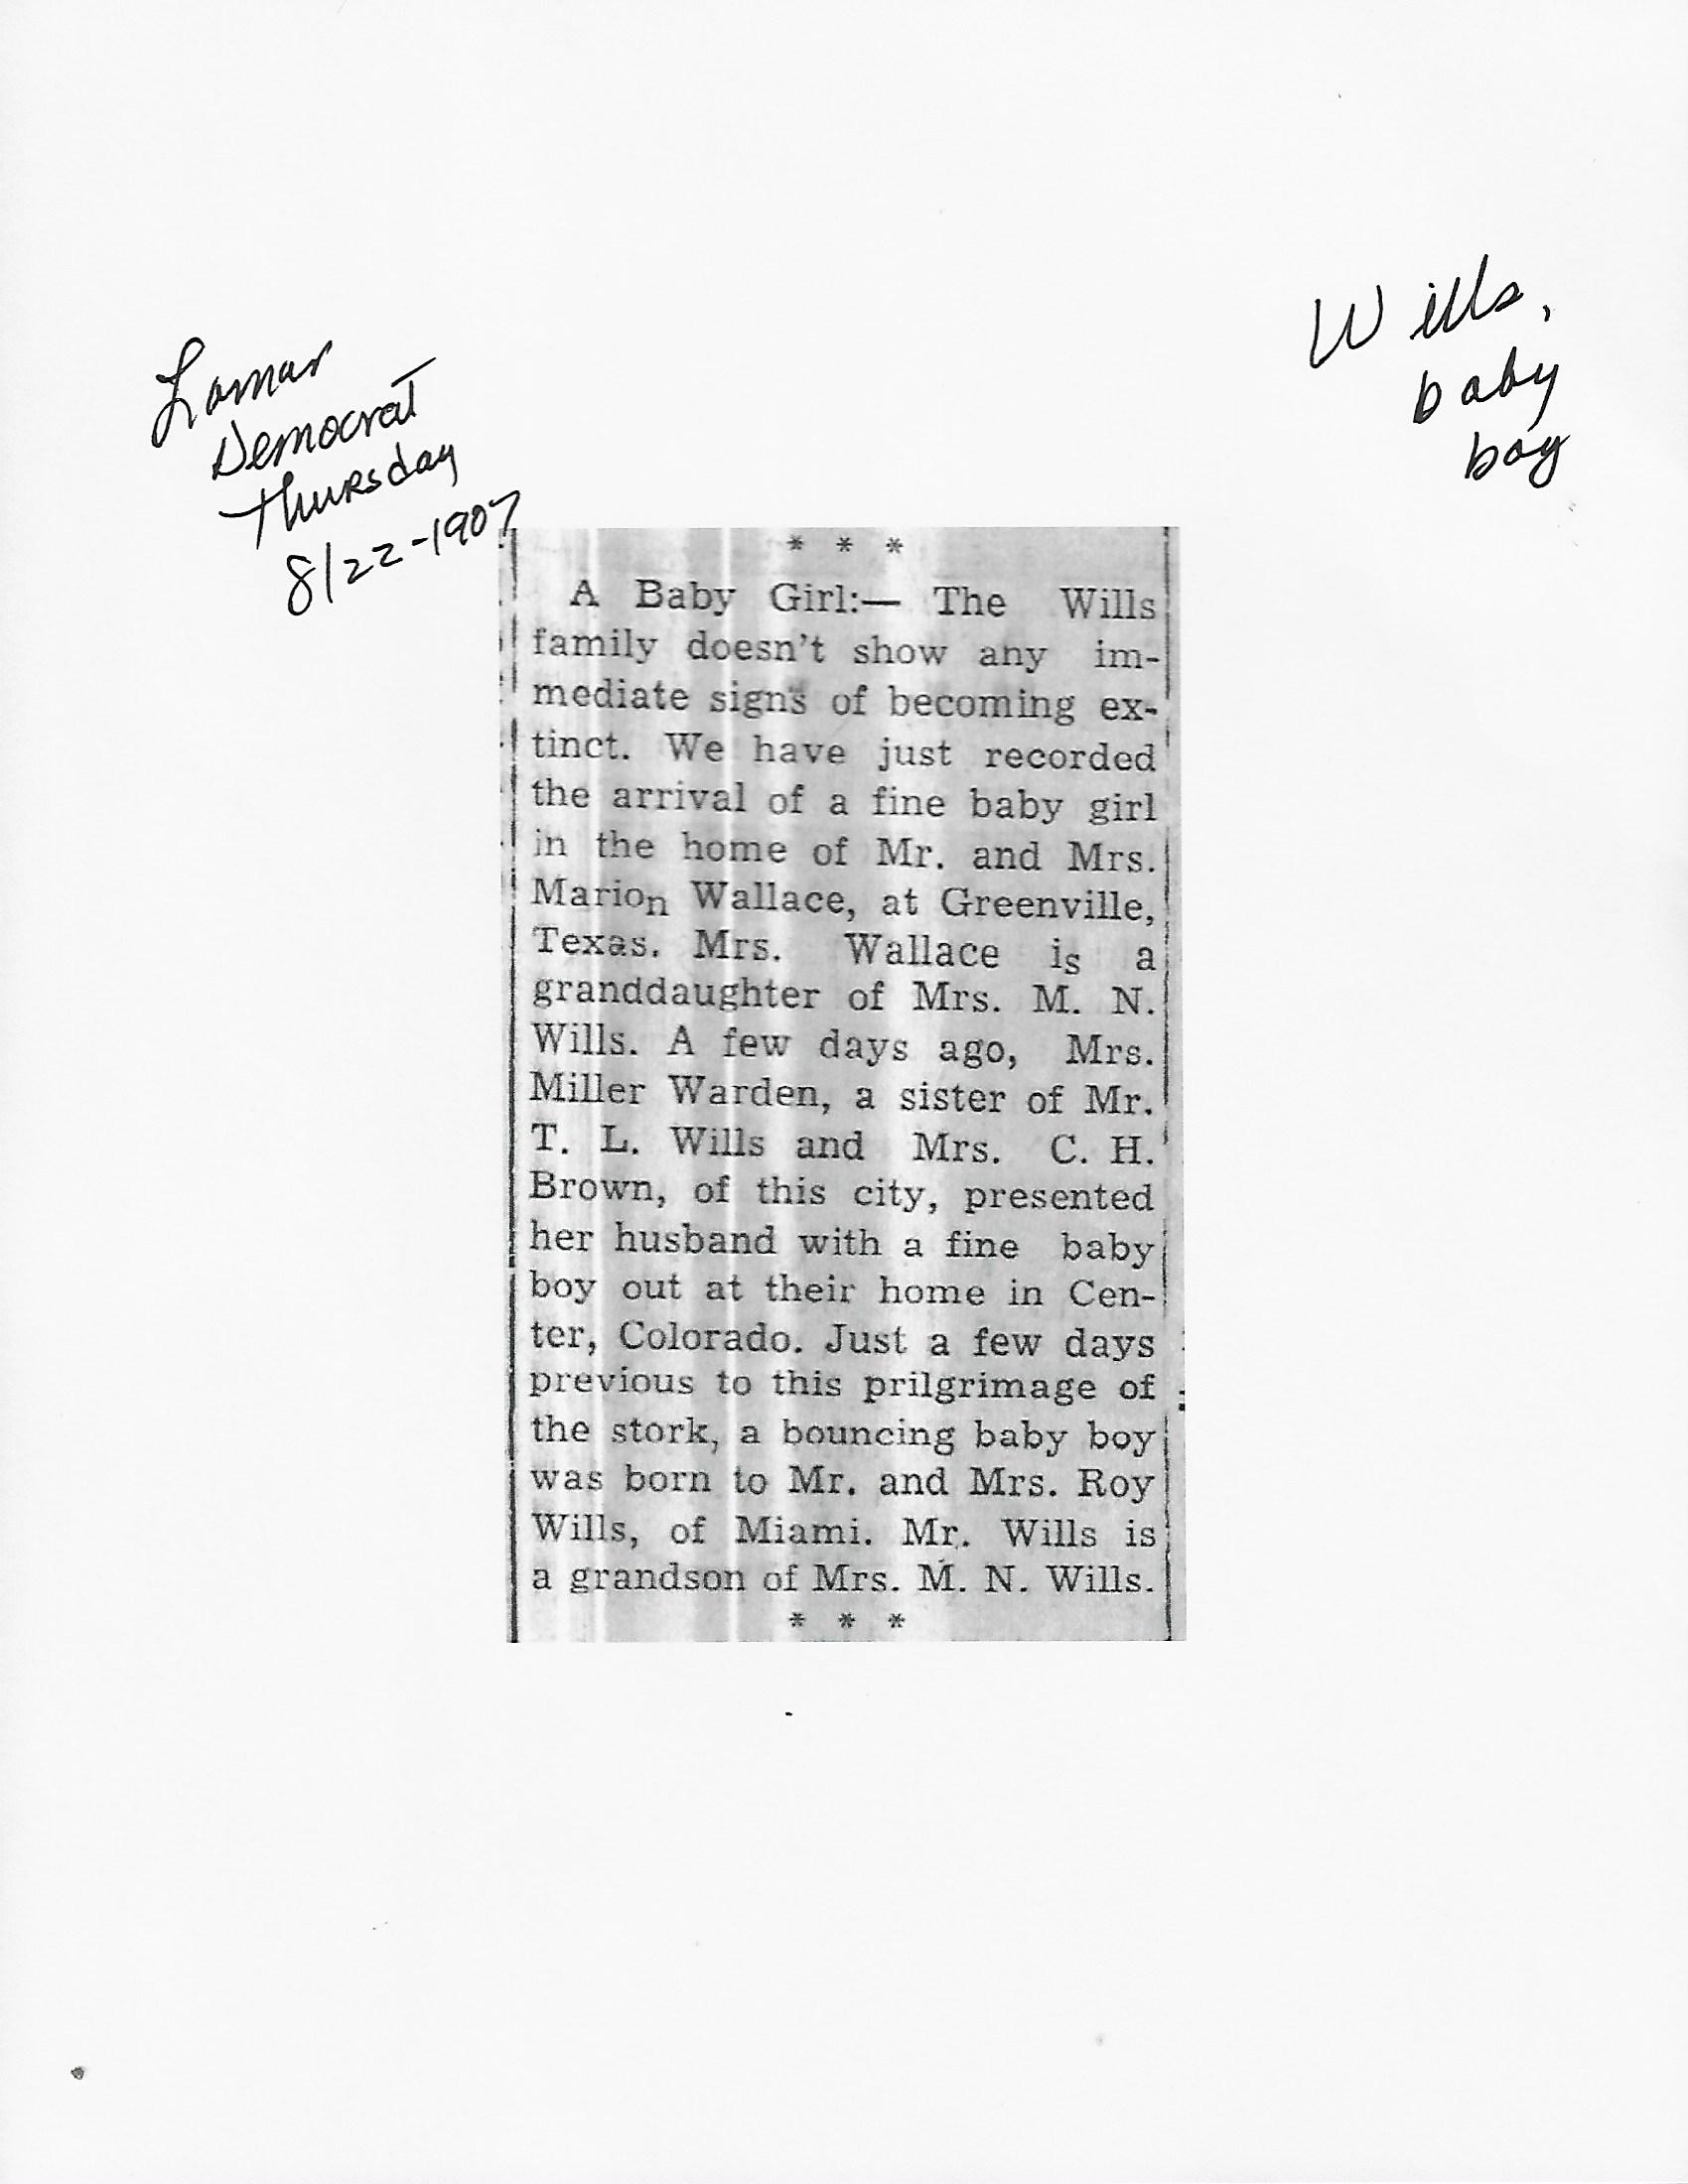 Wills,
baby
boy
Lamar
Democrat
Thursday
8/22-1907
* * *
A Baby Girl:— The Wills
family doesn't show any im-
mediate signs of becoming ex-
tinct. We have just recorded
the arrival of a fine baby girl
in the home of Mr. and Mrs.
Marion Wallace, at Greenville,
Texas. Mrs. Wallace is a
granddaughter of Mrs. M. N.
Wills. A few days ago, Mrs.
Miller Warden, a sister of Mr.
T. L. Wills and Mrs. C. H.
Brown, of this city, presented
her husband with a fine baby
boy out at their home in Cen-
ter, Colorado. Just a few days
previous to this prilgrimage of
the stork, a bouncing baby boy
was born to Mr. and Mrs. Roy
Wills, of Miami. Mr. Wills is
a grandson of Mrs. M. N. Wills.
* * *